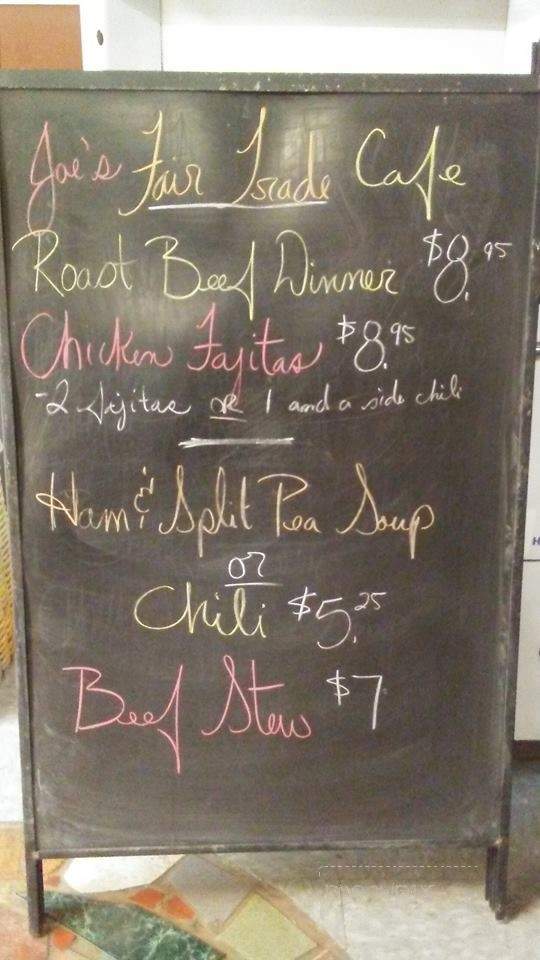 Joe's Fair Trade Cafe
Roast Beef Dinner $8.95
Chicken Fajitas $8.95
-2 fijitas OR 1 and a side chili
Ham & Split Pea Soup
or
Chili $5.25
Beef Stew $7